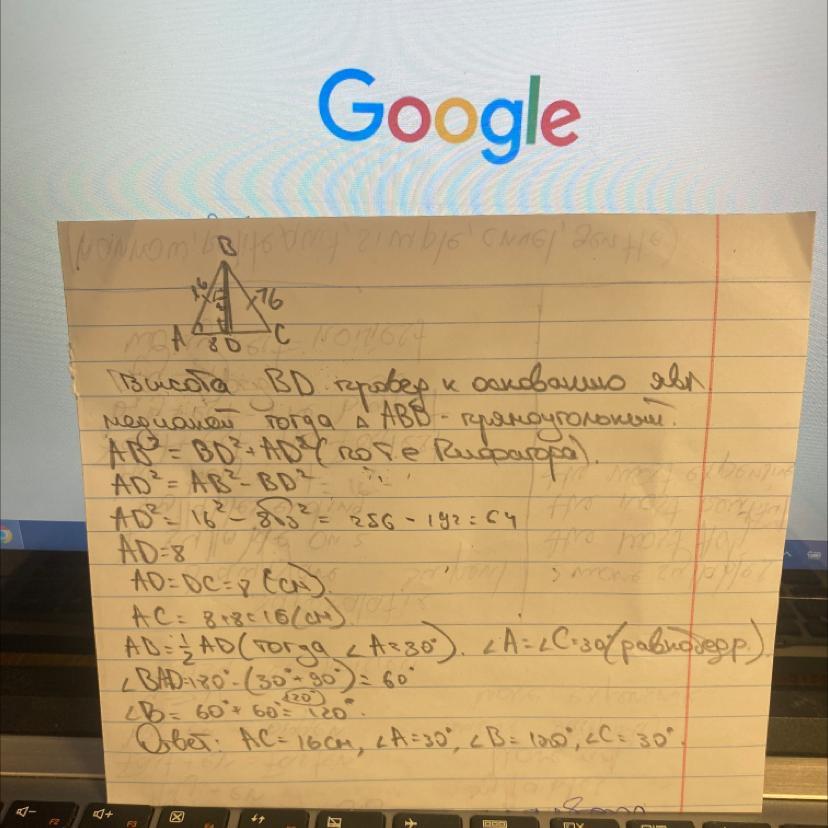 Google
B
16 16
A 8 D C
Высота BD провед к основанию явл.
медианой тогда △ ABD - прямоугольный.
AB² = BD² + AD² (по т е Пифагора).
AD² = AB² - BD²
AD² = 16² - 8√3² = 256 - 192 = 64
AD = 8
AD = DC = 8 (см)
AC = 8+8=16(см)
AD = 1/2 AD (тогда ∠A = 30°). ∠A = ∠C = 30° (равнобедр.)
∠BAD=180° - (30° + 90°) = 60°
∠B = 60° + 60° = 120°.
Ответ: AC = 16см, ∠A = 30°, ∠B = 120°, ∠C = 30°.